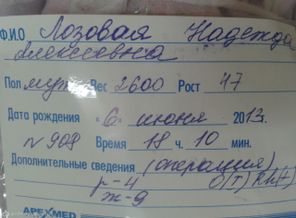 Ф.И.О Лозовая Надежда
Алексеевна
Пол муж Вес 2600 Рост 47
Дата рождения "6" июня 2013г.
N 908 Время 18 ч. 10 мин.
Дополнительные сведения (операция)
р-4 0(I) Rh(+)
ж-9
APEXMED